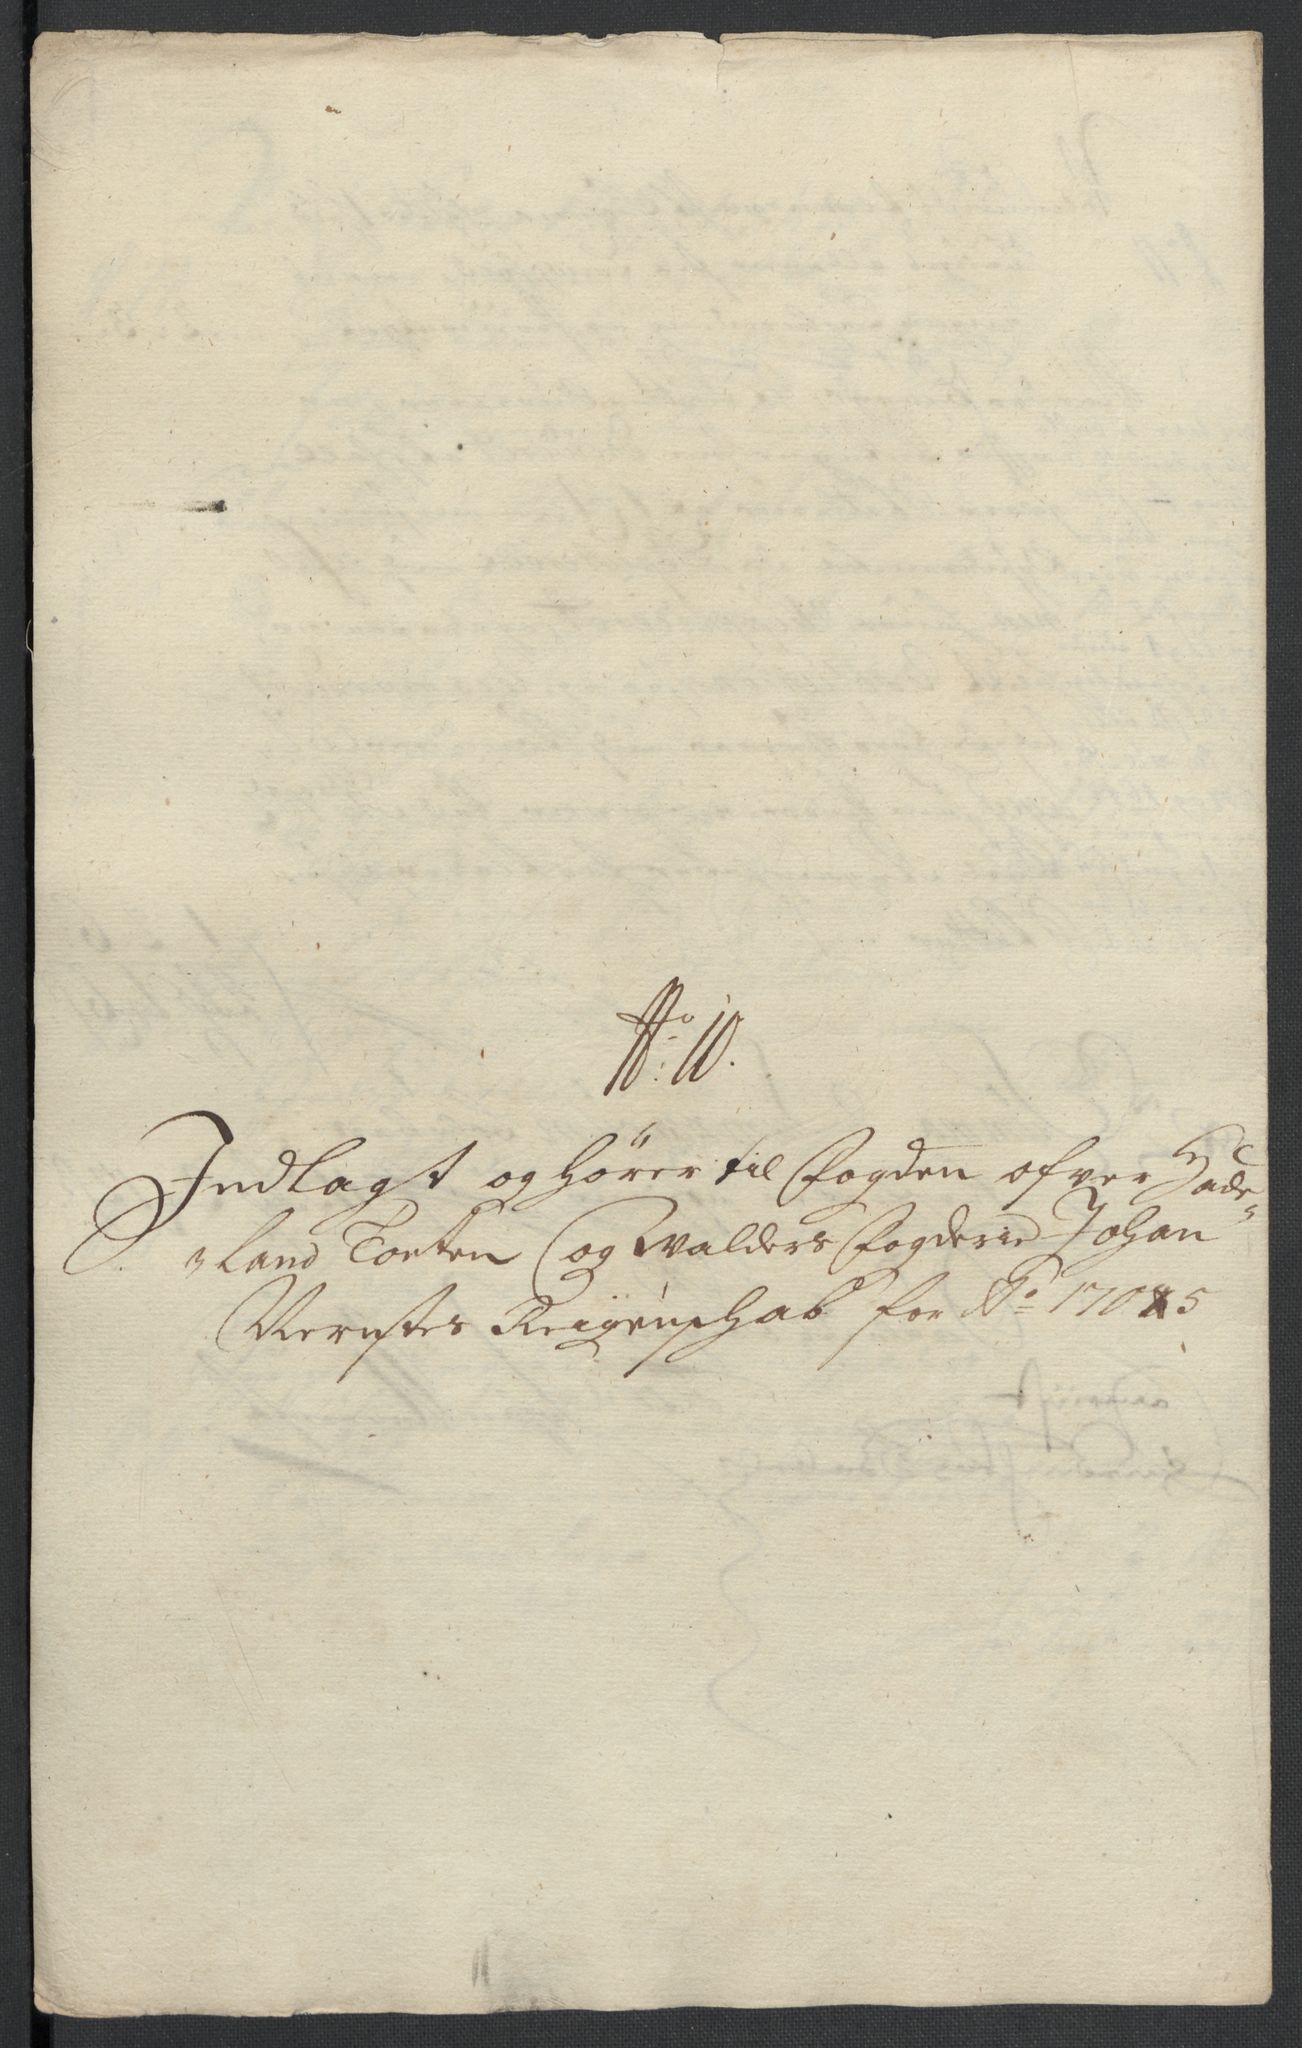 No: 10.
Indlagt og hörer til Fogden ofver Hade„
„land Toeten og Walders Fogderie Johan
Nernstes Reigenschab for Ao 1705